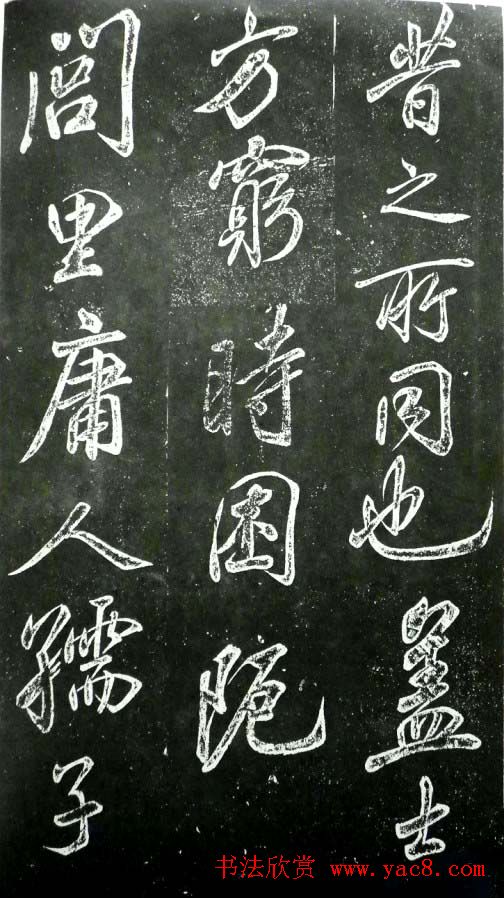 昔之所同也盖士
方窮時困阨
閭里庸人孺子
书法欣赏 www.yac8.com